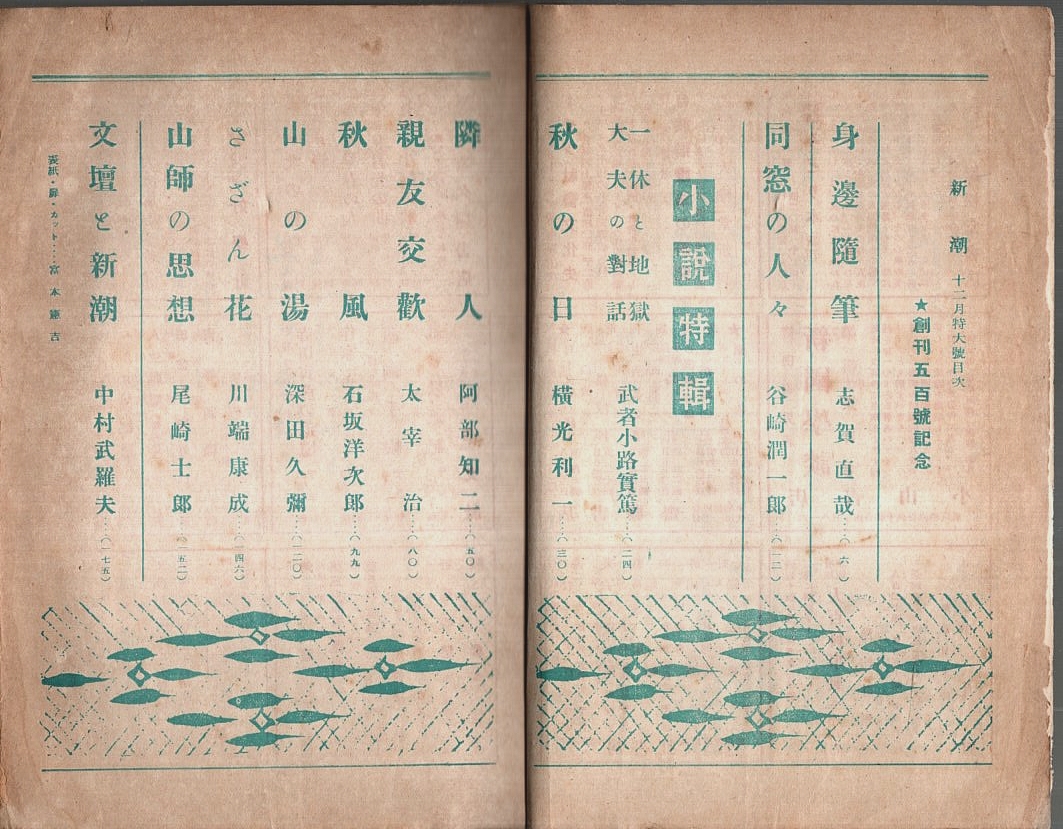 新潮 十二月特大號目次
★創刊五百號記念
身邊隨筆 志賀直哉…(六)
同窓の人々 谷崎潤一郎…(一二)
小説特輯
一休と地獄
大夫の對話 武者小路實篤…(二四)
秋の日 横光利一…(三〇)
隣人 阿部知二…(五〇)
親友交歡 太宰治…(八〇)
秋風 石坂洋次郎…(九九)
山の湯 深田久彌…(一二〇)
さざん花 川端康成…(一四六)
山師の思想 尾崎士郎…(一五二)
文壇と新潮 中村武羅夫…(一七五)
表紙・扉・カット…宮本憲吉